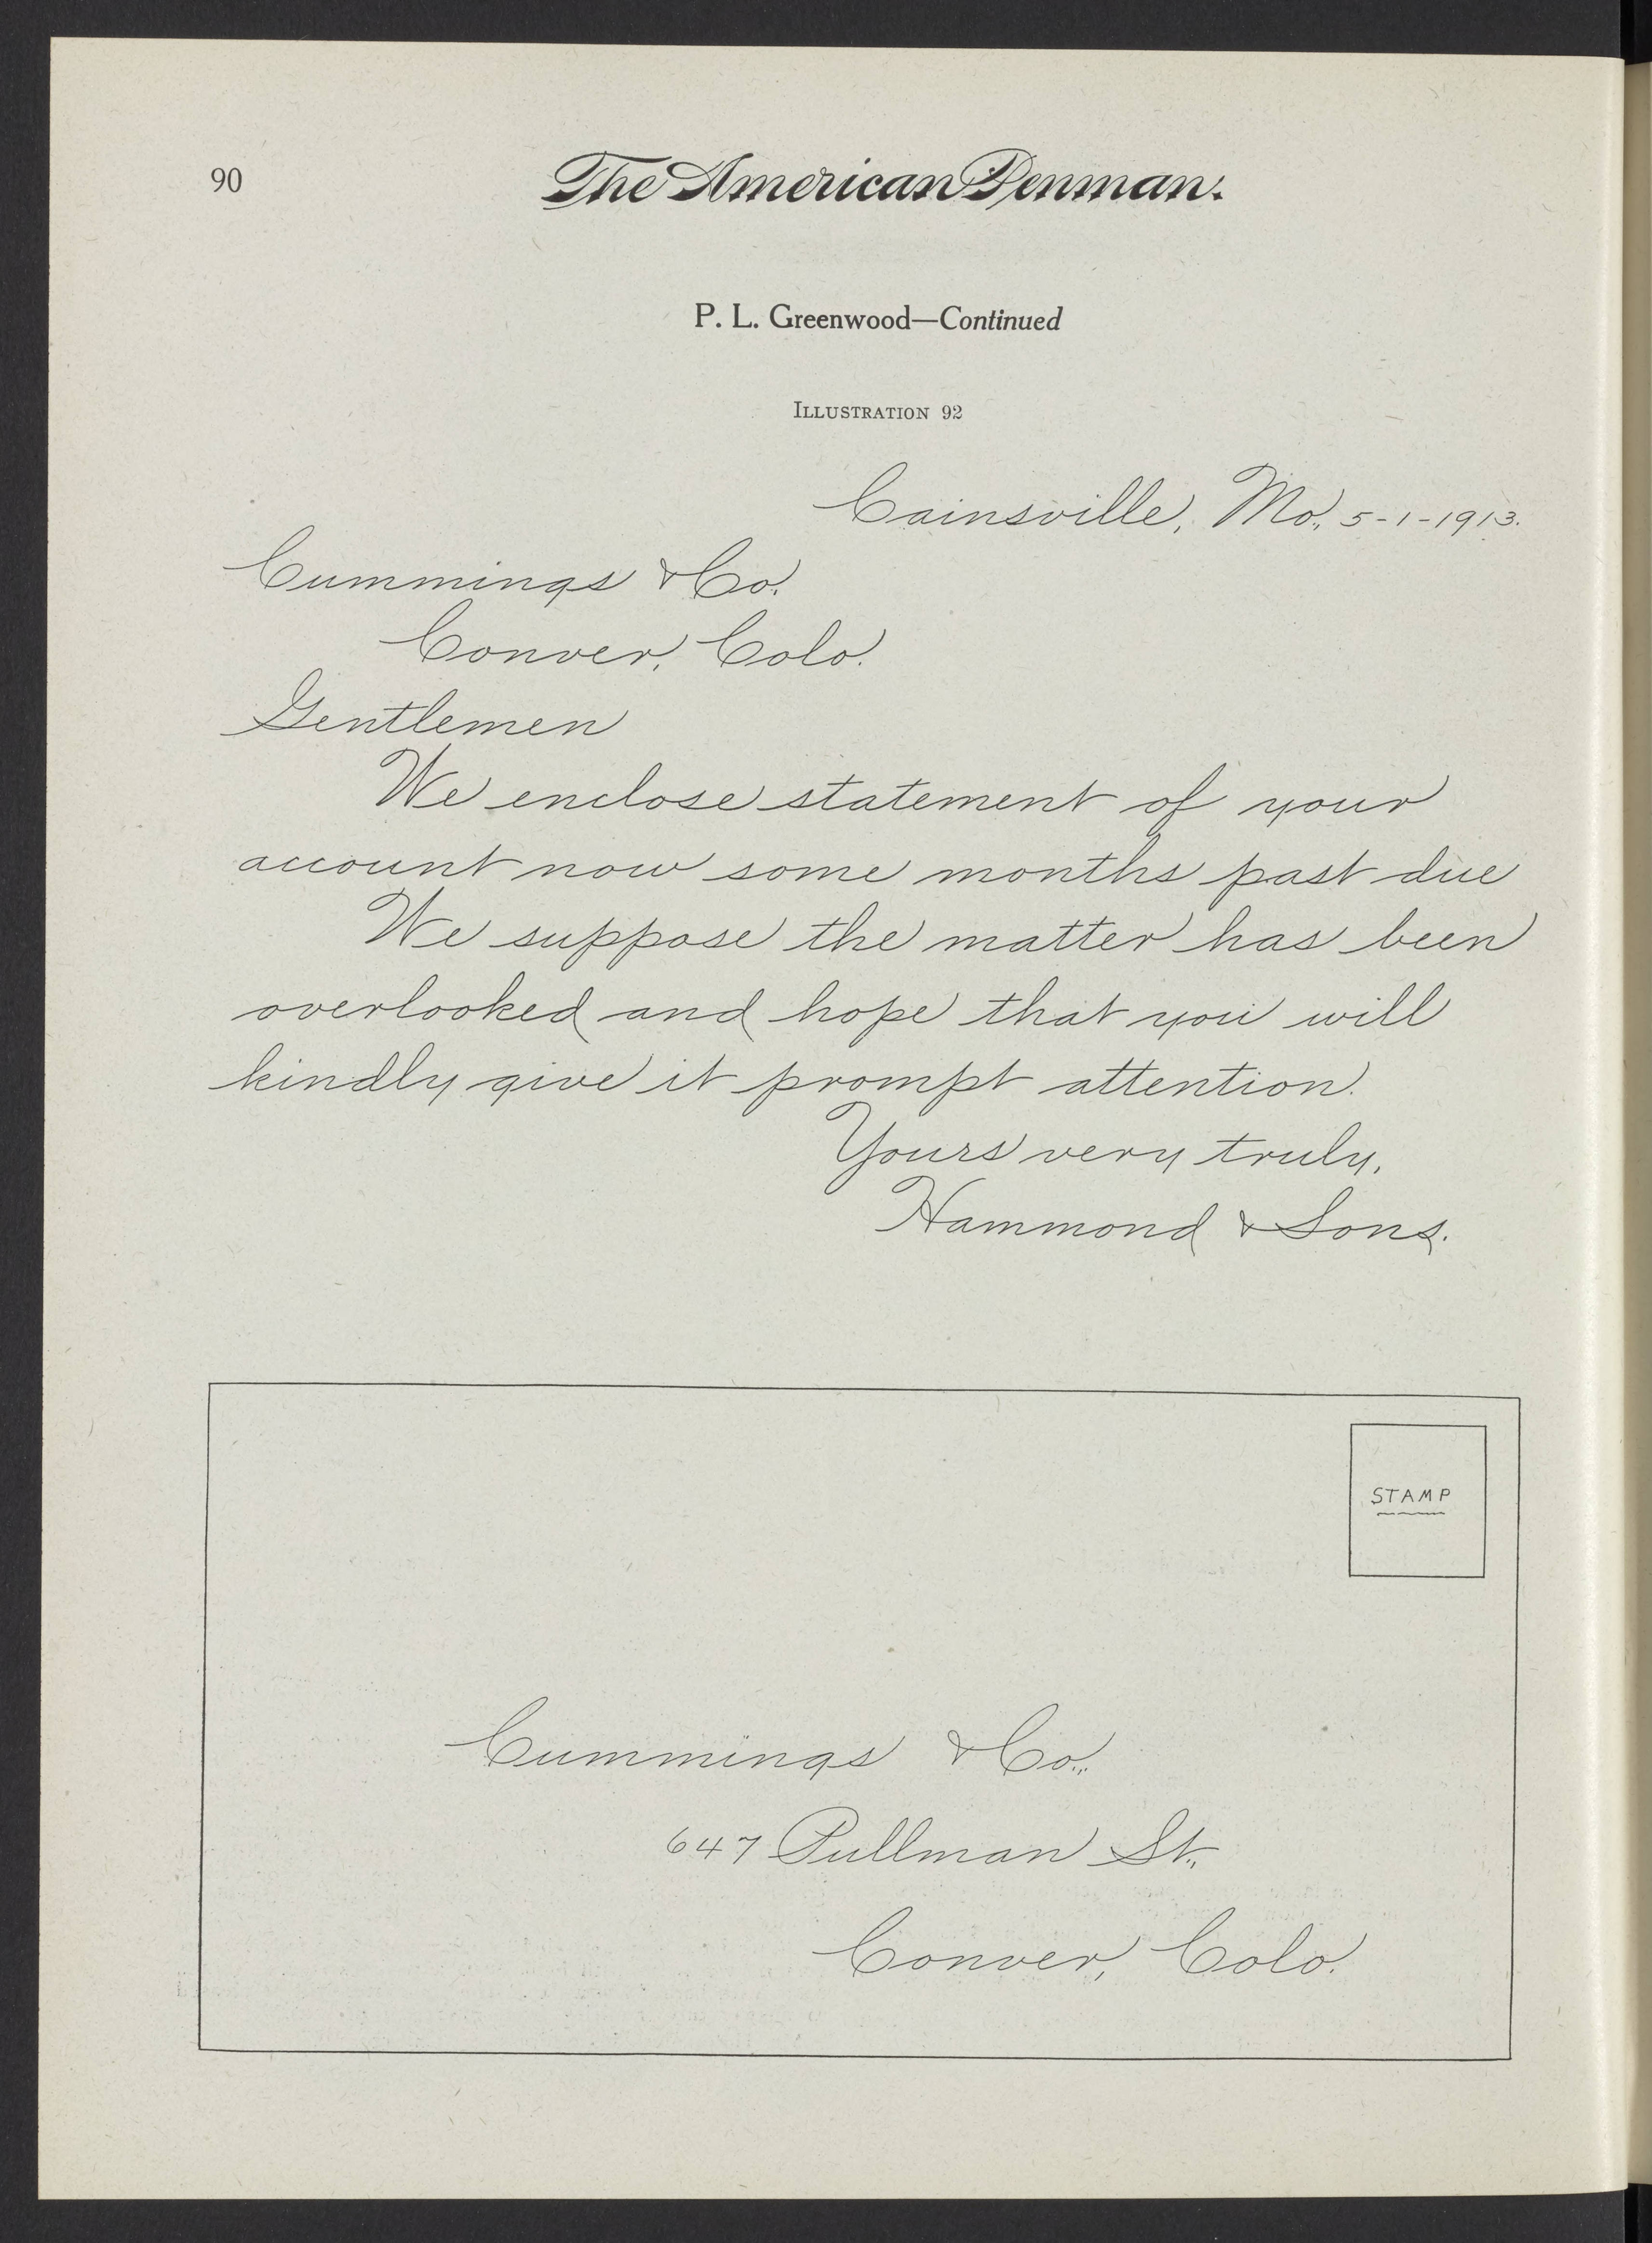 90
The American Penman.
P. L. Greenwood—Continued
Illustration 92
Cainsville, Mo., 5-1-1913.
Cummings & Co.
Conver, Colo.
Gentlemen
We enclose statement of your
account now some months past due
We suppose the matter has been
overlooked and hope that you will
kindly give it prompt attention.
Yours very truly,
Hammond & Sons.
STAMP
Cummings & Co.,
647 Pullman St.,
Conver, Colo.